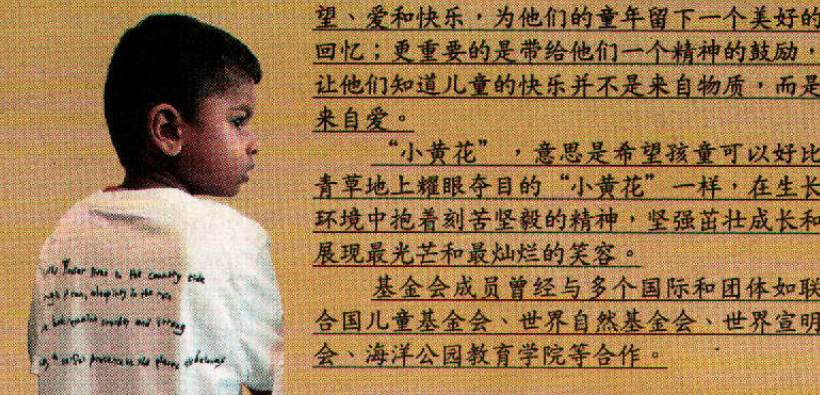 望、爱和快乐，为他们的童年留下一个美好的
回忆；更重要的是带给他们一个精神的鼓励，
让他们知道儿童的快乐并不是来自物质，而是
来自爱。
“小黄花”，意思是希望孩童可以好比
青草地上耀眼夺目的“小黄花”一样，在生长
环境中抱着刻苦坚毅的精神，坚强茁壮成长和
展现最光芒和最灿烂的笑容。
基金会成员曾经与多个国际和团体如联
合国儿童基金会、世界自然基金会、世界宣明
会、海洋公园教育学院等合作。
flower lives in the country side
sleeping in the
and strong